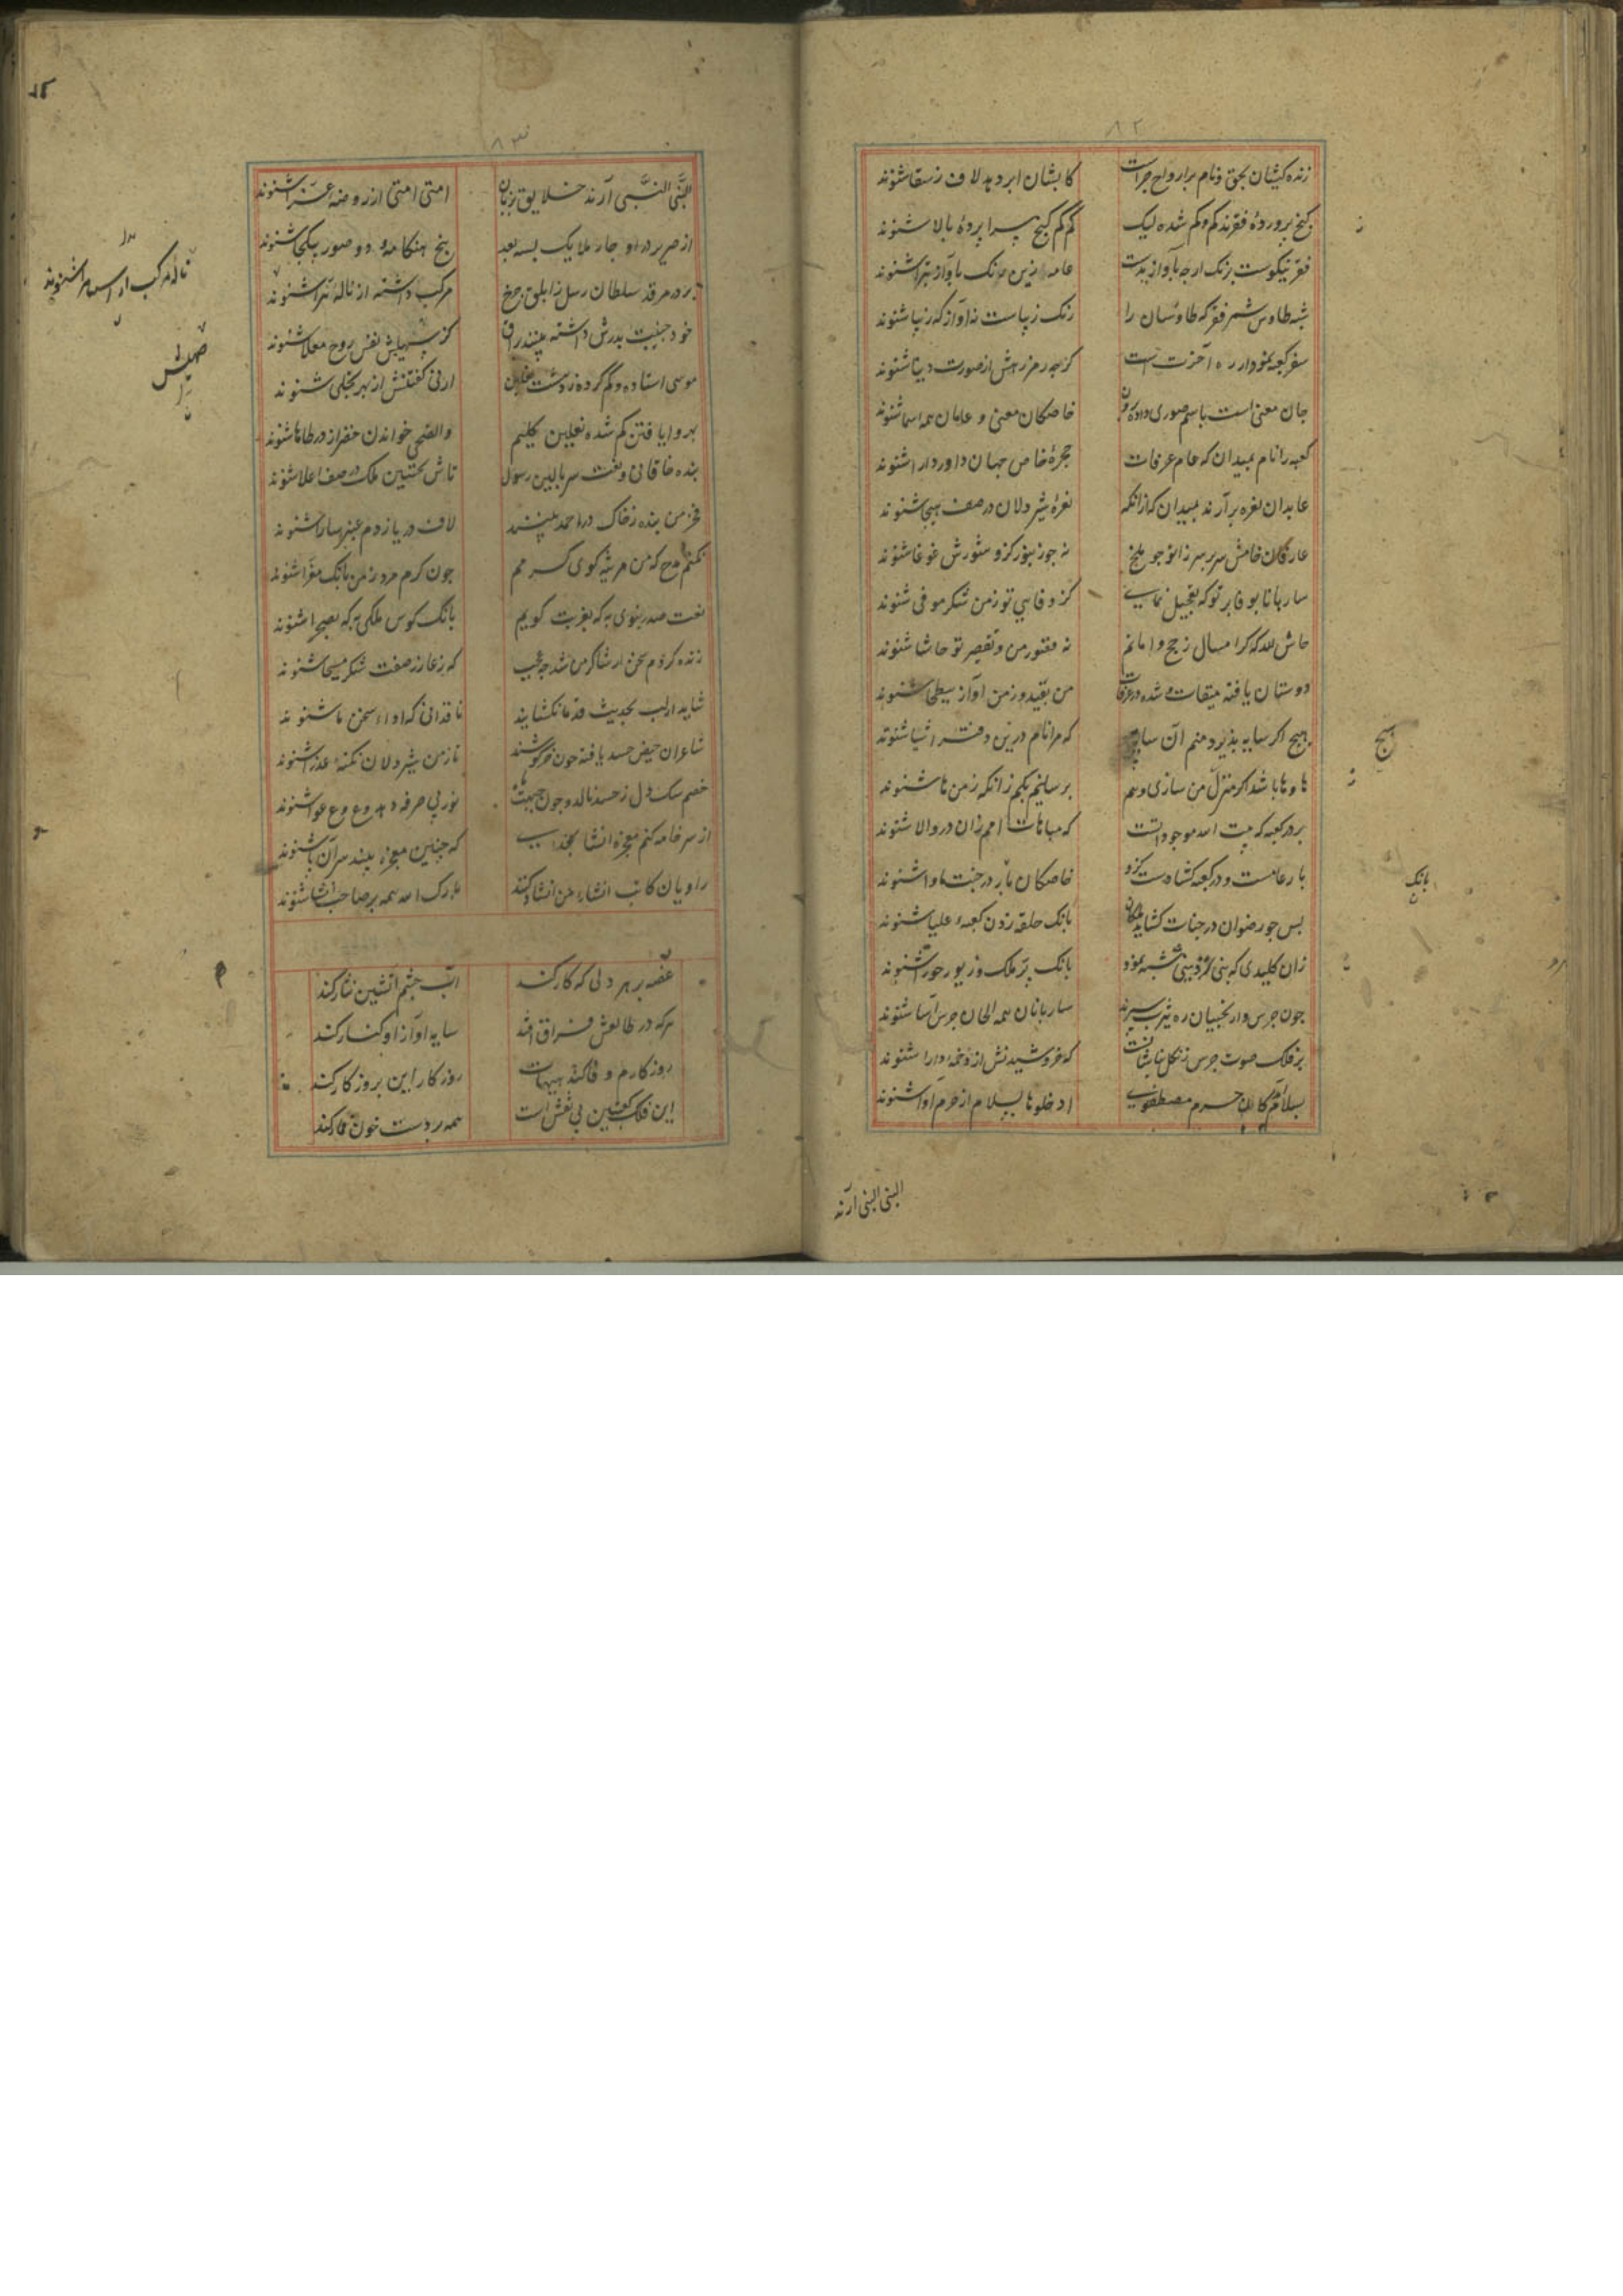 ۸۲
زنده کیشان بحق و نام بر ارواح جراست کابشان ابر دهد لاف ز سقا شنوند
کنج پروردهٔ فقرند کم و کم شده لیک کم کم کنج سرا پردهٔ بالا شنوند
فقر نیکوست برنک ارچه بآواز بدست عامه زین رنک بآواز تبرا شنوند
شبه طاوس شمر فقر که طاوسان را رنک زیباست نه آواز که زیبا شنوند
سفر کعبه نمودار ره آخرت است کرچه رمز رهش از صورت دیبا شنوند
جان معنی است باسم صوری داده برون خاصکان معنی و عامان همه اسما شنوند
کعبه را نام بمیدان که عام عرفات حجرهٔ خاص جهان داور دارا شنوند
عابدان نعره برآرند بمیدان که ازانکه نعرهٔ شیر دلان در صف هیجا شنوند
عارفان خامش و سر بر سر زانو چو ملخ نه چو زنبور کزو شورش غوغا شنوند
ساربانا بوفا بر تو که تعجیل نمایی کز وفایی تو ز من شکر موفی شنوند
حاش لله که کر امسال ز حج وا مانم نه قصور من و تقصیر تو حاشا شنوند
دوستان یافته میقات و شده در عرفات من بقید و ز من آواز ببطحا شنوند
هیچ اکر سایه پذیرد منم آن سایهٔ هیچ که مرا نام درین دفتر اشیا شنوند
ها و ها باشد اکر منزل من سازی و هم بر سانیم بکم زانکه ز من ها شنوند
بر در کعبه که بیت الله موجوداتست که مباهات امم زان در والا شنوند
بار عامست و در کعبه کشادست کزو خاصکان بار در جنت ماوا شنوند
پس چو رضوان در جنات کشاید ملکان بانک حلقه زدن کعبهٔ علیا شنوند
زان کلیدی که نبی نزد بنی شیبه نمود بانک پر ملک و زیور حورا شنوند
چون جرس دار نجیبان ره یثرب سپرند ساربانان همه الحان جرس آسا شنوند
بر فلک صوت جرس زنکل نباشانست که خروشیدنش از دخمهٔ دارا شنوند
بسلام آمدکان حرم مصطفوی ادخلوها بسلام از حرم آوا شنوند
هیچ
بانک
النبی النبی آرند
۸۳
النبی النبی آرند خلایق بزبان امتی امتی از روضهٔ غرا شنوند
از صریر در او چار ملایک بسه بعد پنج هنکامهٔ دو صور بیکجا شنوند
بر در مرقد سلطان رسل ز ابلق چرخ مرکب داشته از ناله تبرا شنوند
خود جنیبت بدرش داشته بینند براق کز صهیلش نفس روح معلا شنوند
موسی استاده و کم کرده ز دهشت نعلین ارنی کفتنش از بهر تجلی شنوند
بهر وا یافتن کم شده نعلین کلیم والضحی خواندن خضر از در طاها شنوند
بنده خاقانی و نعت سر بالین رسول تاش تحسین ملک در صف اعلا شنوند
فخر من بنده ز خاک در احمد بینند لاف دریا ز دم عنبر سارا شنوند
نکنم مدح که من مرثیه کوی کرمم چون کرم مرد ز من بانک معزا شنوند
نعت صدر نبوی به که بغربت کویم بانک کوس ملکی به که بصحرا شنوند
زنده کردم سخن ار شاکر من شد چه عجب که ز عازر صفت شکر مسیحا شنوند
شاید ار لب بحدیث قدما نکشایند ناقدانی که ادای سخن ما شنوند
شاعران حیض حسد یافته چون خرکوشند تا ز من شیر دلان نکتهٔ عذرا شنوند
خصم سک دل ز حسد نالد و چون جبهت ماه نور بی صرفه دهد وع وع عوا شنوند
از سر خامه کنم معجزه انشا بخدای که چنین معجزه بینند سران یا شنوند
راویان کانب انشاء من انشاد کنند بارک الله همه بر صاحب انشا شنوند
غصه بر هر دلی که کار کند آب چشم آتشین نثار کند
هرکه در طالعش فراق افتد سایه او از او کنار کند
روزکارم وفا کند هیهات روزکار این بروزکار کند
این فلک کعبتین بی نقش است همه بر دست خون قمار کند
صهیلش